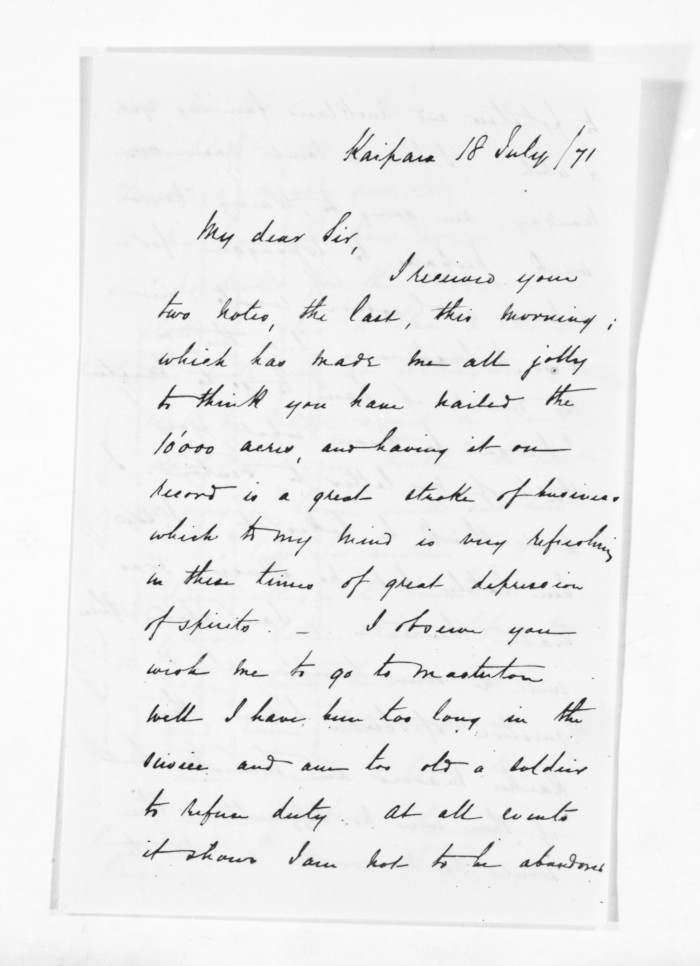 Kaipara 18 July /71
My dear Sir,
I received your
two notes, the last, this morning;
which has made me all jolly
to think you have nailed the
10'000 acres, and having it on
record is a great stroke of business
which to my mind is very refreshing
in these times of great depression
of spirits. – I observe you
wish me to go to Masterton
well I have been too long in the
service and am too old a soldier
to refuse duty. At all events
it shows I am not to be abandoned